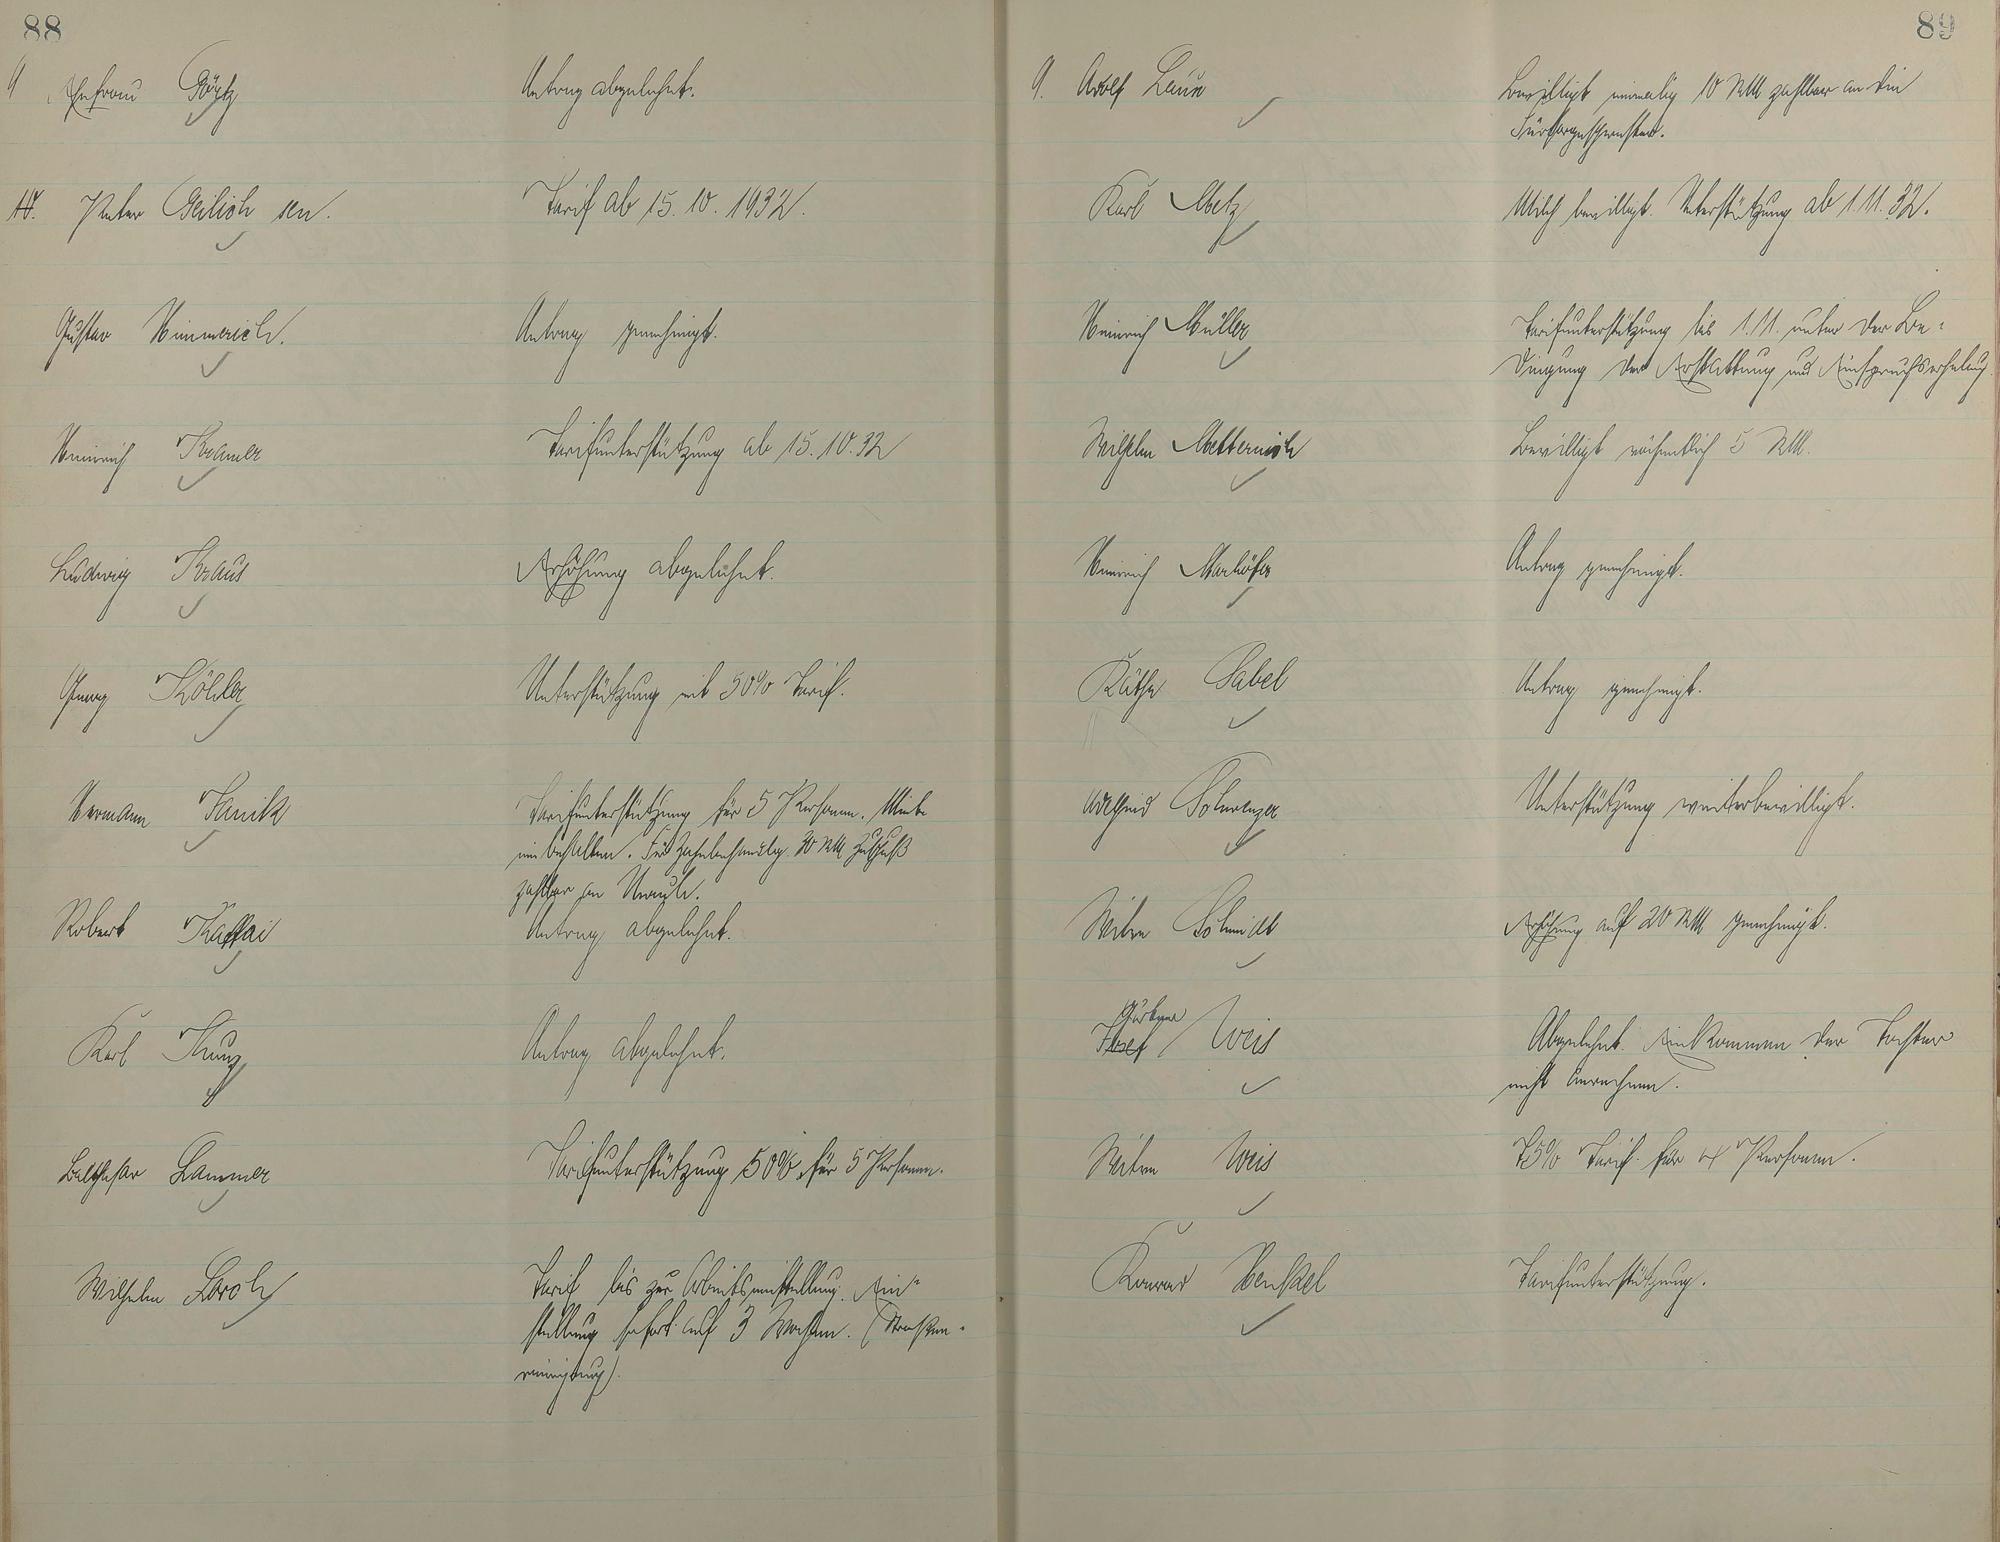 88
9 Ehefrau Götz
Antrag abgelehnt.
10. Peter Geilich sen.
Tarif ab 15.10.1932.
Gustav Himmerich.
Antrag genehmigt.
Heinrich Kramer
Tarifunterstützung ab 15.10.32
Ludwig Kraus
Erhöhung abgelehnt.
Georg Köhler
Unterstützung mit 50% Tarif.
Hermann Janik
Tarifunterstützung für 5 Personen. Miete
einbehalten. Für Zahnbehandlg. 20 RM Zuschuß
zahlbar an
Robert Kaffai
Antrag abgelehnt.
Karl Kunz
Antrag abgelehnt.
Balthasar Lammer
Tarifunterstützung 50% für 5 Personen.
Wilhelm Lorch
Tarif bis zur Arbeitseinstellung. Ein-
stellung sofort auf 3 Wochen. (Straßen-
reinigung).
89
9. Adolf Laux
Bewilligt einmalig 10 RM zahlbar an die
Fürsorgeschwester.
Karl Metz
Milch bewilligt. Unterstützung ab 1.11.32.
Heinrich Müller
Tarifunterstützung bis 1.11. unter der Be-
dingung der Erstattung und Einspruchserhebung
Wilhelm Metternich
Bewilligt wöchentlich 5 RM.
Heinrich Marhöfer
Antrag genehmigt.
Käthe Sabel
Antrag genehmigt.
Adelheid Schwenzer
Unterstützung weiterbewilligt.
Witwe Schmidt
Erhöhung auf 20 RM genehmigt.
Gärtner
Josef Weis
Abgelehnt. Einkommen der Tochter
nicht anrechnen.
Witwe Weis
75% Tarif für 4 Personen.
Konrad Wenkel
Tarifunterstützung.